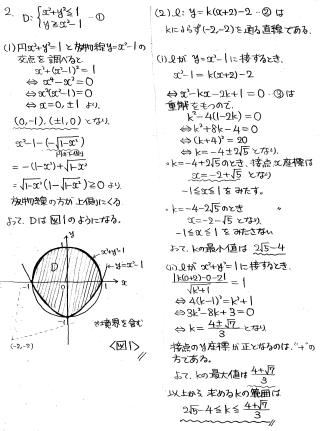 2.
D: { x²+y²≦1
y≧x²-1 -①
(1) 円x²+y²=1と放物線y=x²-1の
交点を調べると
x²+(x²-1)²=1
⇔ x⁴-x²=0
⇔ x²(x²-1)=0
⇔ x=0, ±1 より,
(0,-1), (±1,0) となり
x²-1-(-√1-x²)
円の下側
= -(1-x²)+√1-x²
= √1-x²(1-√1-x²)≧0 より
放物線の方が上側にくる
よって, Dは図1のようになる。
y
1
x²+y²=1
y=x²-1
D
-1
1
x
-1
※境界を含む
(-2,-2)
<図1>
(2) l: y=k(x+2)-2 -② は
kによらず(-2,-2)を通る直線である。
(i) lが y=x²-1に接するとき,
x²-1=k(x+2)-2
⇔ x²-kx-2k+1=0 -③は
重解をもつので,
k²-4(1-2k)=0
⇔ k²+8k-4=0
⇔ (k+4)²=20
⇔ k=-4±2√5 となり,
・k=-4+2√5のとき, 接点x座標は
x=-2+√5 となり
-1≦x≦1 をみたす。
・k=-4-2√5のとき 〃
x=-2-√5 となり,
-1≦x≦1 をみたさない
よって, kの最小値は 2√5-4
(ii) lが x²+y²=1に接するとき,
|k(0+2)-0-2|/√k²+1=1
⇔ 4(k-1)²=k²+1
⇔ 3k²-8k+3=0
⇔ k=4±√7/3 となり
接点のy座標が正となるのは, "+"の
方である。
よって, kの最大値は 4+√7/3
以上から, 求めるkの範囲は
2√5-4≦k≦4+√7/3